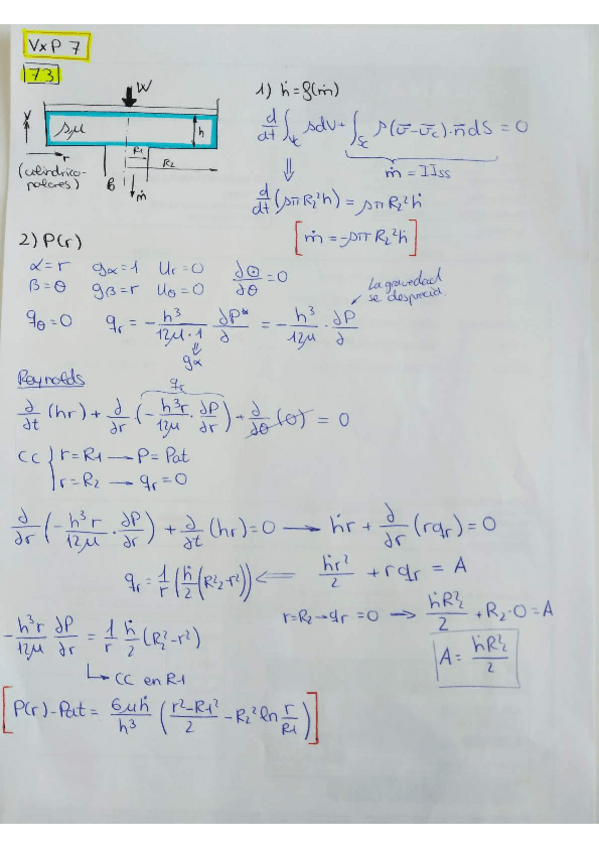 VxP 7
73
W
1) ḣ = f(ṁ)
ρμ
h
R1
R2
r
(cilíndrico-polares)
B
ṁ
d/dt ∫Vc ρdV + ∫Sc ρ(v̄ - v̄c)·n̄ dS = 0
⇓
ṁ = IIss
d/dt (ρπR2²h) = ρπR2²ḣ
[ṁ = -ρπR2²ḣ]
2) P(r)
α = r gα = 1 Ur = 0 ∂Θ/∂θ = 0
β = θ gβ = r Uθ = 0
La gravedad se desprecia
qθ = 0 qr = - h³/12μ·1 ∂P*/∂ = - h³/12μ · ∂P/∂
⇓
gα
Reynolds
qr
∂/∂t (hr) + ∂/∂r (- h³r/12μ · ∂P/∂r) + ∂/∂θ (0) = 0
CC { r = R1 → P = Pat
r = R2 → qr = 0
∂/∂r (- h³r/12μ · ∂P/∂r) + ∂/∂t (hr) = 0 → ḣr + ∂/∂r (rqr) = 0
qr = 1/r (ḣ/2 (R2² - r²)) ⇐ ḣr²/2 + rqr = A
r = R2 → qr = 0 → ḣR2²/2 + R2·0 = A
A = ḣR2²/2
- h³r/12μ ∂P/∂r = 1/r ḣ/2 (R2² - r²)
↳ CC en R1
[P(r) - Pat = 6μḣ/h³ (r² - R1²/2 - R2² ln r/R1)]